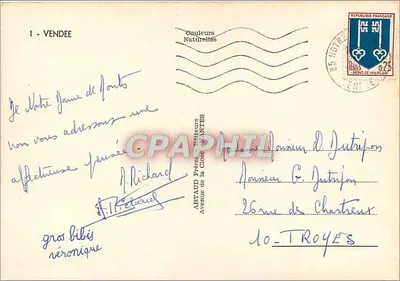 1 - VENDÉE
Couleurs
Naturelles
REPUBLIQUE FRANÇAISE
0,75
MONT-DE-MARSAN
85 NOTRE
VENDEE
De Notre Dame de Monts
nous vous adressons une
affectueuse pensée
M. Richard
A. Richard
gros bibis
véronique
CPAPHIL
ARTAUD Frères, Éditeurs
Avenue de la Close NANTES
Madame Monsieur D. Dutripon
Monsieur G. Dutripon
26 rue des Chartreux
10 - TROYES